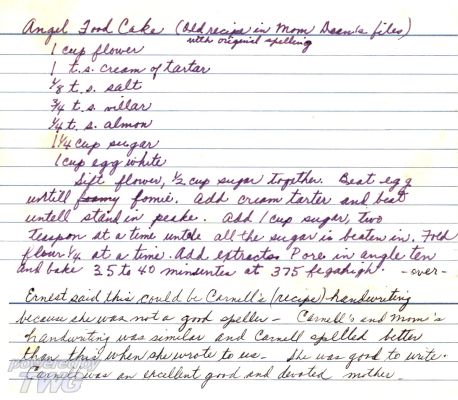 Angel Food Cake (Old recipe in Mom Dean's files)
with original spelling
1 cup flower
1 t.s. cream of tartar
1/8 t.s. salt
3/4 t.s. villar
1/4 t.s. almon
1 1/4 cup sugar
1 cup egg white
Sift flower, 1/2 cup sugar together. Beat egg
untill foamy fomie. Add cream tarter and beat
untell stand in peake. Add 1 cup sugar, two
teaspon at a time untole all the sugar is beaten in. Fold
flour 1/4 at a time. Add extractes Pore in angle ten
and bake 35 to 40 minsentes at 375 fegahigh. -over-
Ernest said this could be Carnell's (recipe) handwriting
because she was not a good speller - Carnell's and mom's
handwriting was similar and Carnell spelled better
than this when she wrote to us. She was good to write.
Carnell was an excellent good and devoted mother.
powered by
TWG